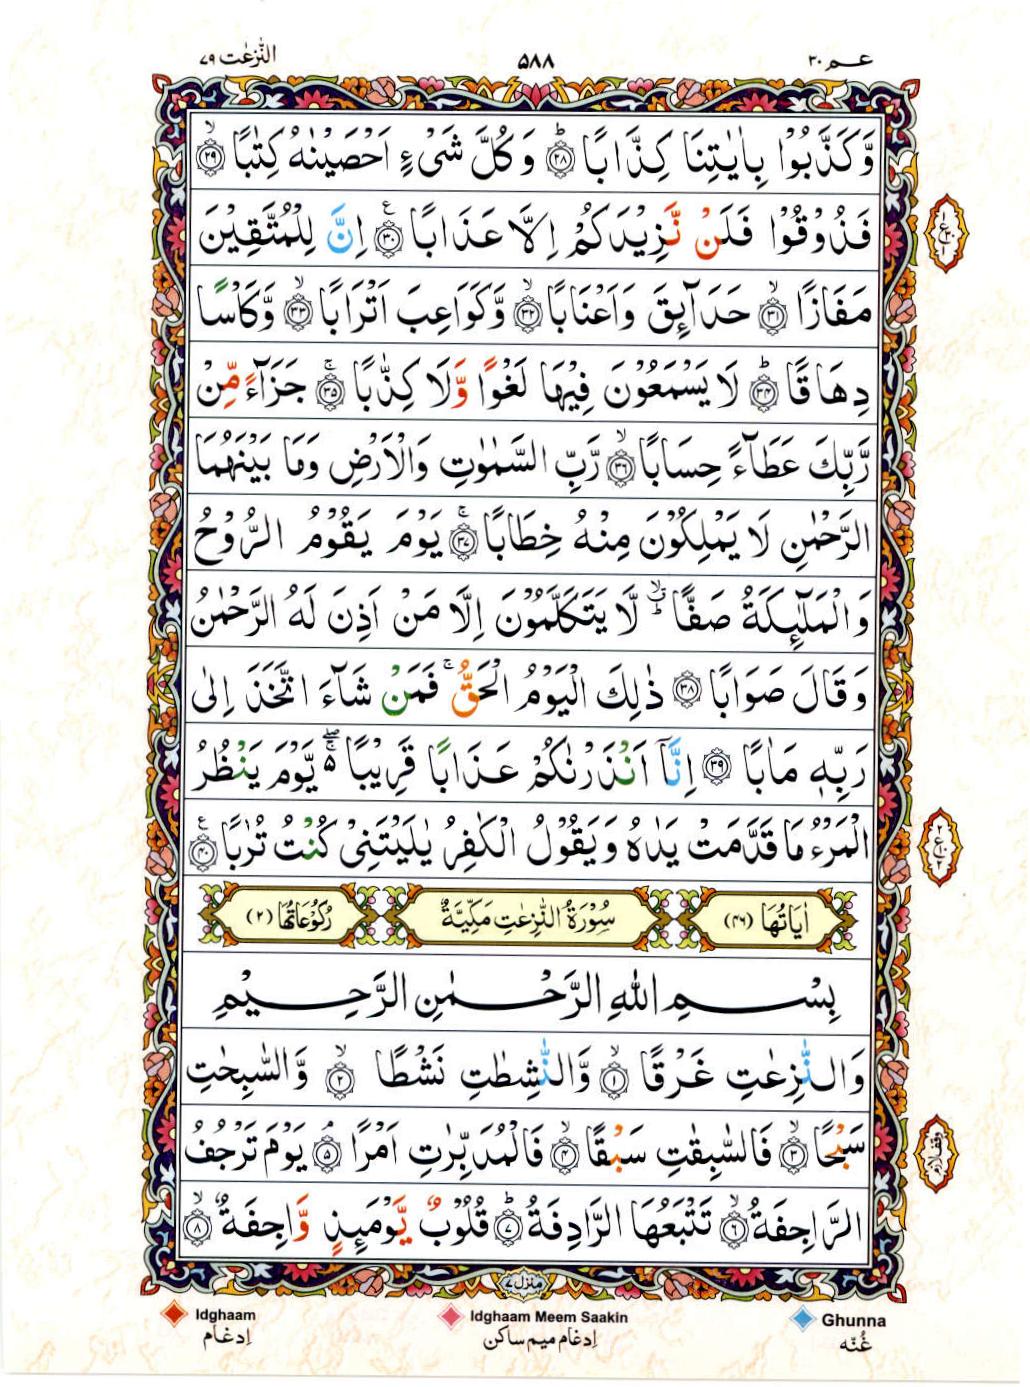 النّٰزعٰت ٧٩ ۵۸۸ عـم ٣٠
وَّكَذَّبُوۡا بِاٰيٰتِنَا كِذَّابًا ؕ‏﴿۲۸﴾ وَكُلَّ شَىۡءٍ اَحۡصَيۡنٰهُ كِتٰبًا ۙ‏﴿۲۹﴾
فَذُوۡقُوۡا فَلَنۡ نَّزِيۡدَكُمۡ اِلَّا عَذَابًا ﴿۳۰﴾ ع اِنَّ لِلۡمُتَّقِيۡنَ
مَفَازًا ۙ‏﴿۳۱﴾ حَدَآٮِٕقَ وَاَعۡنَابًا ۙ‏﴿۳۲﴾ وَّكَوَاعِبَ اَتۡرَابًا ۙ‏﴿۳۳﴾ وَّكَاۡسًا
دِهَاقًا ؕ‏﴿۳۴﴾ لَا يَسۡمَعُوۡنَ فِيۡهَا لَغۡوًا وَّلَا كِذّٰبًا ۚ‏﴿۳۵﴾ جَزَآءً مِّنۡ
رَّبِّكَ عَطَآءً حِسَابًا ۙ‏﴿۳۶﴾ رَّبِّ السَّمٰوٰتِ وَالۡاَرۡضِ وَمَا بَيۡنَهُمَا
الرَّحۡمٰنِ لَا يَمۡلِكُوۡنَ مِنۡهُ خِطَابًا ۚ‏﴿۳۷﴾ يَوۡمَ يَقُوۡمُ الرُّوۡحُ
وَالۡمَلٰٓٮِٕكَةُ صَفًّا ؕۙ لَّا يَتَكَلَّمُوۡنَ اِلَّا مَنۡ اَذِنَ لَهُ الرَّحۡمٰنُ
وَقَالَ صَوَابًا ﴿۳۸﴾ ذٰلِكَ الۡيَوۡمُ الۡحَـقُّ ۚ فَمَنۡ شَآءَ اتَّخَذَ اِلٰى
رَبِّهٖ مَاٰبًا ﴿۳۹﴾ اِنَّاۤ اَنۡذَرۡنٰـكُمۡ عَذَابًا قَرِيۡبًا ۖۚ ۵ يَّوۡمَ يَنۡظُرُ
الۡمَرۡءُ مَا قَدَّمَتۡ يَدٰهُ وَيَقُوۡلُ الۡـكٰفِرُ يٰلَيۡتَنِىۡ كُنۡتُ تُرٰبًا ﴿۴۰﴾ ع
اٰيَاتُهَا (٤٦) سُوۡرَةُ النّٰزِعٰتِ مَكِّيَّةٌ رُكُوۡعَاتُهَا (٢)
بِسۡمِ اللهِ الرَّحۡمٰنِ الرَّحِيۡمِ
وَالنّٰزِعٰتِ غَرۡقًا ۙ‏﴿۱﴾ وَّالنّٰشِطٰتِ نَشۡطًا ۙ‏﴿۲﴾ وَّالسّٰبِحٰتِ
سَبۡحًا ۙ‏﴿۳﴾ فَالسّٰبِقٰتِ سَبۡقًا ۙ‏﴿۴﴾ فَالۡمُدَبِّرٰتِ اَمۡرًا ۘ‏﴿۵﴾ يَوۡمَ تَرۡجُفُ
الرَّاجِفَةُ ۙ‏﴿۶﴾ تَتۡبَعُهَا الرَّادِفَةُ ؕ‏﴿۷﴾ قُلُوۡبٌ يَّوۡمَٮِٕذٍ وَّاجِفَةٌ ۙ‏﴿۸﴾
وقف لازم
منزل ۷
Idghaam Idghaam Meem Saakin Ghunna
اِدغام اِدغام میم ساکن غُنّه